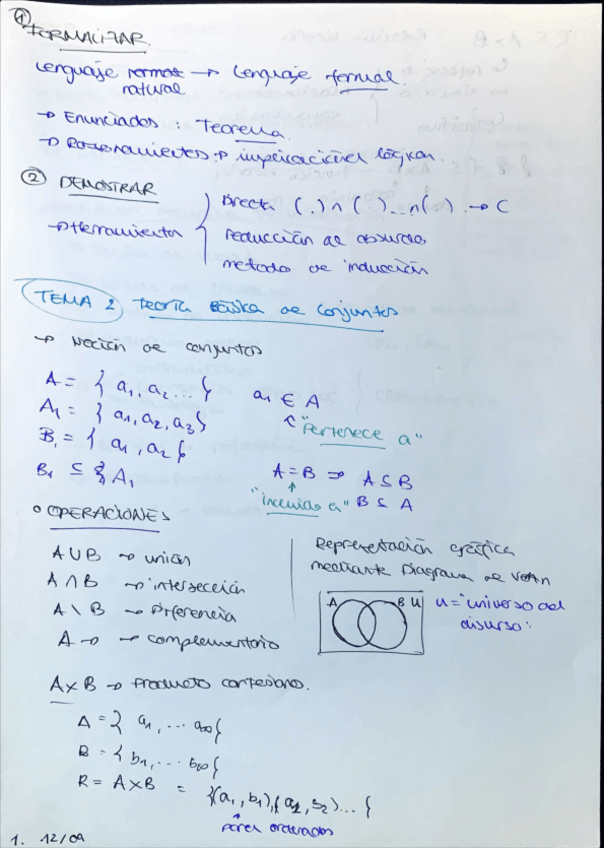 ① FORMALIZAR.
Lenguaje formal → Lenguaje formal.
natural
→ Enunciados : Teorema.
→ Razonamientos → implicaciones lógicas.
② DEMOSTRAR
→ Herramientas
Directa (.) ∧ (.) ... ∧ (.) → C
reducción al absurdo
metodo de inducción
TEMA 2 Teoría Básica de Conjuntos
→ Noción de conjuntos
A = { a₁, a₂ ... }
a₁ ∈ A
A₁ = { a₁, a₂, a₃ }
"Pertenece a"
B₁ = { a₁, a₂ }
B₁ ⊆ A₁
A = B ⇒ A ⊆ B
"incluido en" B ⊆ A
○ OPERACIONES
A ∪ B → unión
A ∩ B → intersección
A \ B → Diferencia
A → → complementario
Representación gráfica
mediante Diagrama de Venn
A B U
U = "universo del
discurso:
A × B → Producto cartesiano.
A = { a₁, ... a∞ }
B = { b₁, ... b∞ }
R = A × B = {(a₁, b₁), (a₂, b₂) ... }
pares ordenados
1. 12/09